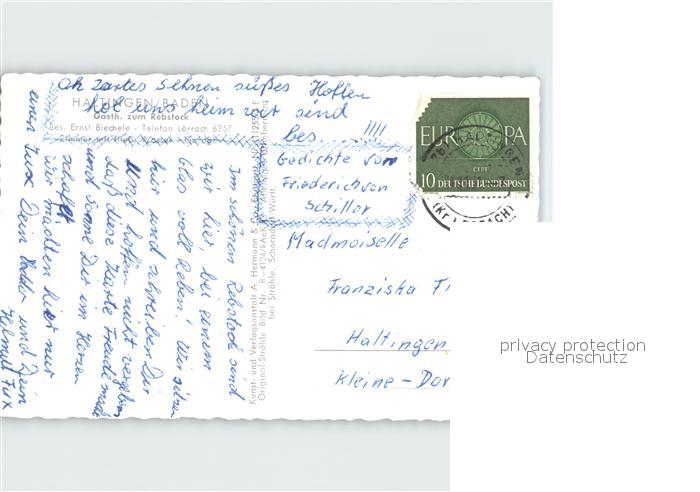 Oh zartes Sehnen süßes Hoffen
HALTINGEN/BADEN
hol uns heim wir sind
Gasth. zum Rebstock
bes.
Bes. Ernst Biechele - Telefon Lörrach 6257
Gedichte von
Friederich von
Schiller
EUROPA
CEPT
10 DEUTSCHE BUNDESPOST
(Kr. LÖRRACH)
Madmoiselle
Franziska F
Haltingen
Kleine-Dor
Im schönen Rebstock sind
wir hier, bei einem
Glas voll Reben! Wir sitzen
hier und schreiben Dir
Und hoffen nicht vergebens
Daß diese Zarte Freud macht
und Sonne Dir im Herzen
schafft
Wir machten hier nur
einen Jux Dein Vadder und Dein
Helmut Fux
Kunst- und Verlagsanstalt A. Hermann &
Original-Strähle Bild Nr. R-4124/kAek
bei Strähle, Schorndorf/Württ.
privacy protection
Datenschutz